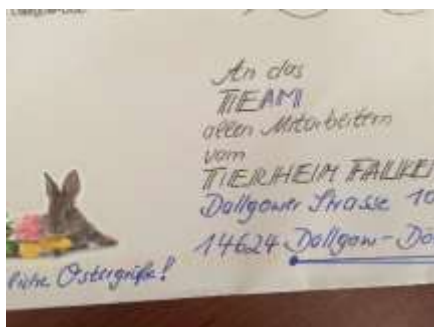 An das
TEAM
allen Mitarbeitern
vom
TIERHEIM FALKEN
Dallgower Strasse 10
14624 Dallgow-Dö
liche Ostergrüße!